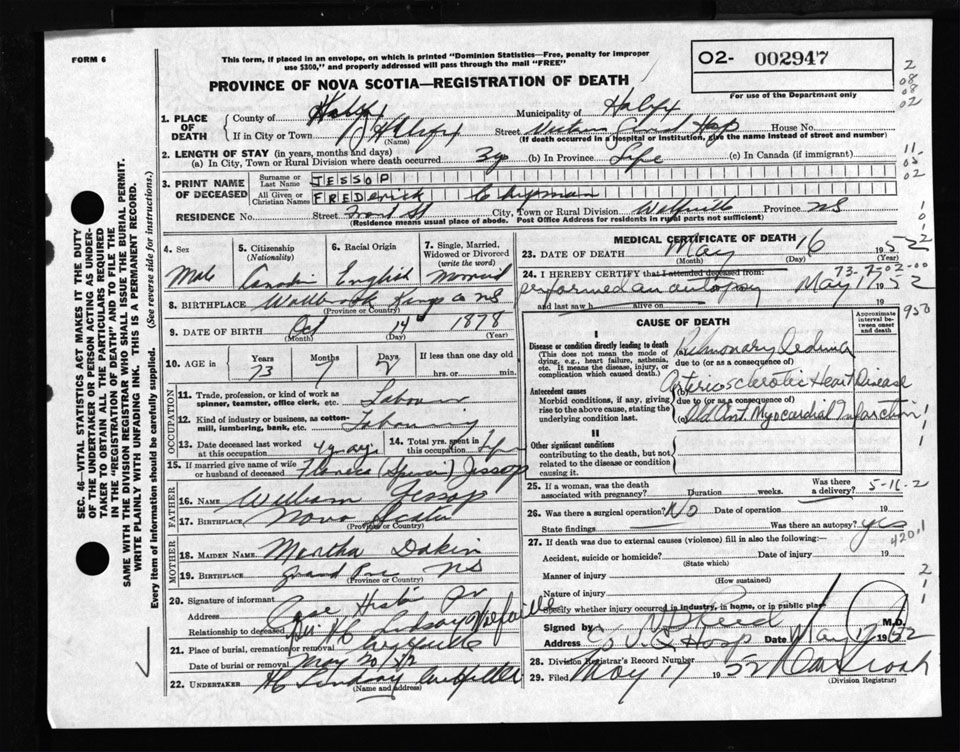 FORM 6
This form, if placed in an envelope, on which is printed "Dominion Statistics—Free, penalty for improper
use $300," and properly addressed will pass through the mail "FREE"
PROVINCE OF NOVA SCOTIA—REGISTRATION OF DEATH
O2- 002947
For use of the Department only
2
08
08
02
1. PLACE OF DEATH
County of Halifax Municipality of Halifax
If in City or Town Halifax Street Hosp House No.
(Name) (If death occurred in a hospital or institution, give the name instead of street and number)
2. LENGTH OF STAY (in years, months and days)
(a) In City, Town or Rural Division where death occurred (b) In Province Life (c) In Canada (if immigrant)
3. PRINT NAME OF DECEASED
Surname or Last Name JESSOP
All Given or Christian Names FREDerick Chipman
RESIDENCE No. Street Front St City, Town or Rural Division Wolfville Province NS
(Residence means usual place of abode. Post Office Address for residents in rural parts not sufficient)
4. Sex
Male
5. Citizenship (Nationality)
6. Racial Origin
English
7. Single, Married, Widowed or Divorced (write the word)
8. BIRTHPLACE Wallbrook Kings Co NS
(Province or Country)
9. DATE OF BIRTH Oct 14 1878
(Month) (Day) (Year)
10. AGE in Years Months Days If less than one day old
73 7 2 hrs. or min.
OCCUPATION
11. Trade, profession, or kind of work as spinner, teamster, office clerk, etc. Labourer
12. Kind of industry or business, as cotton-mill, lumbering, bank, etc. Labouring
13. Date deceased last worked at this occupation
14. Total yrs. spent in this occupation
15. If married give name of wife or husband of deceased Jessop
FATHER
16. NAME William Jessop
17. BIRTHPLACE Nova Scotia
(Province or Country)
MOTHER
18. MAIDEN NAME Martha Dakin
19. BIRTHPLACE Grand Pre NS
(Province or Country)
20. Signature of informant
Address
Relationship to deceased H C Lindsay Wolfville
21. Place of burial, cremation or removal Wolfville
Date of burial or removal May 20/52
22. UNDERTAKER H C Lindsay Wolfville
(Name and address)
MEDICAL CERTIFICATE OF DEATH
23. DATE OF DEATH May 16 1952
(Month) (Day)
24. I HEREBY CERTIFY that I attended deceased from:
73-7-02-00
performed an autopsy May 17 1952
and last saw h alive on 19
CAUSE OF DEATH
Approximate interval between onset and death
950
I
Disease or condition directly leading to death
(This does not mean the mode of dying, e.g., heart failure, asthenia, etc. It means the disease, injury, or complication which caused death.)
(a) Pulmonary Oedema
due to (or as a consequence of)
Antecedent causes
Morbid conditions, if any, giving rise to the above cause, stating the underlying condition last.
Arteriosclerotic Heart Disease
due to (or as a consequence of)
(c) Old Ant. Myocardial Infarction
II
Other significant conditions
contributing to the death, but not related to the disease or condition causing it.
25. If a woman, was the death associated with pregnancy? Duration weeks. Was there a delivery? 5-11-2
26. Was there a surgical operation? No Date of operation 19
State findings Was there an autopsy? Yes
4201
27. If death was due to external causes (violence) fill in also the following:
Accident, suicide or homicide? Date of injury 19
(State which)
Manner of injury
(How sustained)
Nature of injury
Specify whether injury occurred in industry, in home, or in public place
Signed by Reed M.D.
Address Hosp Date May 17 1952
28. Division Registrar's Record Number
29. Filed May 17 1952
(Division Registrar)
SEC. 46—VITAL STATISTICS ACT MAKES IT THE DUTY
OF THE UNDERTAKER OR PERSON ACTING AS UNDER-
TAKER TO OBTAIN ALL THE PARTICULARS REQUIRED
IN THE "REGISTRATION OF DEATH" AND TO FILE THE
SAME WITH THE DIVISION REGISTRAR WHO SHALL ISSUE THE BURIAL PERMIT.
WRITE PLAINLY WITH UNFADING INK. THIS IS A PERMANENT RECORD.
Every item of information should be carefully supplied. (See reverse side for instructions.)